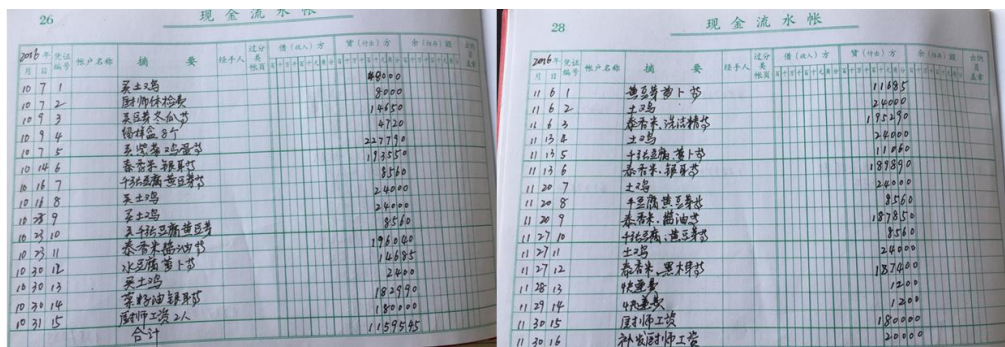 26
现金流水帐
2016年 凭证编号 帐户名称 摘要 经手人 过分类帐页 借(收入)方 贷(付出)方 余(结存)额
月 日
10 7 1 买土鸡 48000
10 7 2 厨师体检费 8000
10 9 3 买豆芽冬瓜等 14650
10 9 4 留样盒8个 4720
10 7 5 买紫菜鸡蛋等 227790
10 14 6 泰香米.银耳等 193550
10 16 7 千张豆腐黄豆芽等 8560
10 16 8 买土鸡 24000
10 23 9 买土鸡 24000
10 23 10 买千张豆腐黄豆芽 8560
10 23 11 泰香米 油等 196040
10 30 12 水豆腐萝卜等 14685
10 30 13 买土鸡 2400
10 30 14 菜籽油银耳等 182990
10 31 15 厨师工资2人 180000
合计 1159545
28
现金流水帐
2016年 凭证编号 帐户名称 摘要 经手人 过分类帐页 借(收入)方 贷(付出)方 余(结存)额 出纳员盖章
月 日
11 6 1 黄豆芽萝卜等 11685
11 6 2 土鸡 24000
11 6 3 泰香米.洗洁精等 195290
11 13 4 土鸡 24000
11 13 5 千张豆腐.萝卜等 11060
11 13 6 泰香米.银耳等 189890
11 20 7 土鸡 24000
11 20 8 千豆腐黄豆芽等 8560
11 20 9 泰香米.油等 187850
11 27 10 千张豆腐.黄豆芽等 8560
11 27 11 土鸡 24000
11 27 12 泰香米.黑木耳等 187400
11 28 13 快递费 1200
11 29 14 快递费 1200
11 30 15 厨师工资 180000
11 30 16 补发厨师工资 20000